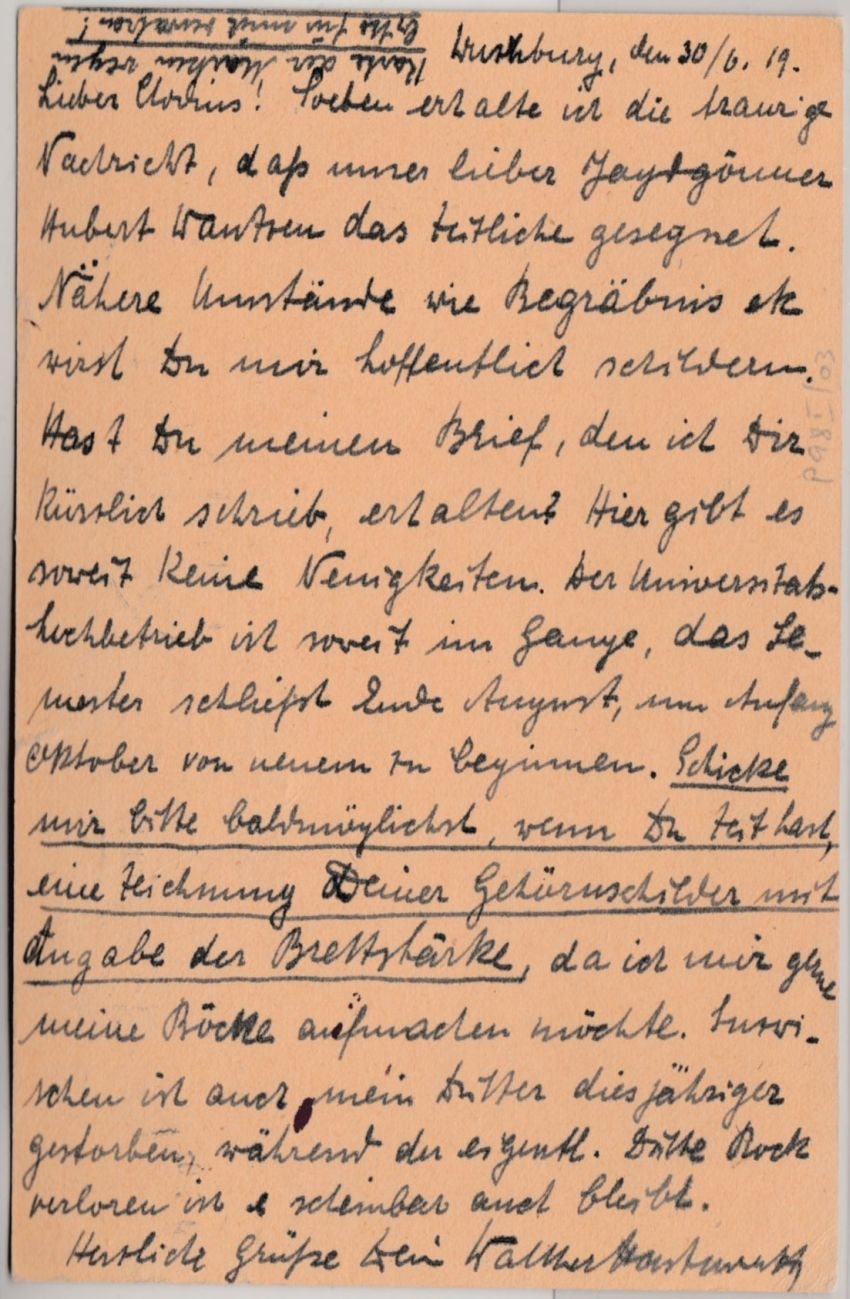 Karte der Marken wegen
bitte für mich verwahren!
Würzburg, den 30/6. 19.
Lieber Clovius! Soeben erhalte ich die traurige
Nachricht, daß unser lieber Jagdgönner
Hubert das zeitliche gesegnet.
Nähere Umstände wie Begräbnis etc
wirst Du mir hoffentlich schildern.
Hast Du meinen Brief, den ich Dir
kürzlich schrieb, erhalten? Hier gibt es
soweit keine Neuigkeiten. Der Universitäts-
hochbetrieb ist soweit im Gange, das Se-
mester schließt Ende August, um Anfang
Oktober von neuem zu beginnen. Schicke
mir bitte baldmöglichst, wenn Du Zeit hast,
eine Zeichnung Deiner Gehörnschilder mit
Angabe der Brettstärke, da ich mir gerne
meine Böcke aufmachen möchte. Inzwi-
schen ist auch mein Dritter diesjähriger
gestorben, während der eigentl. Dritte Bock
verloren ist & scheinbar auch bleibt.
Herzliche Grüße Dein Walther
P98I/03